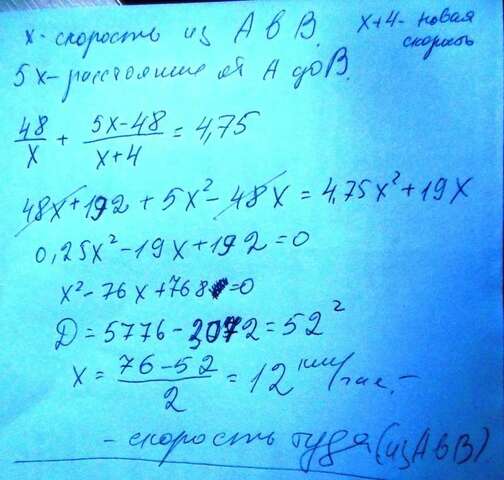 x - скорость из А в В. x+4 - новая скорость
5x - расстояние от А до В.
48/x + (5x-48)/(x+4) = 4,75
48x+192 + 5x² - 48x = 4,75x² + 19x
0,25x² - 19x + 192 = 0
x² - 76x + 768 = 0
D = 5776 - 3072 = 52²
x = (76-52)/2 = 12 км/час. -
- скорость туда (из А в В)